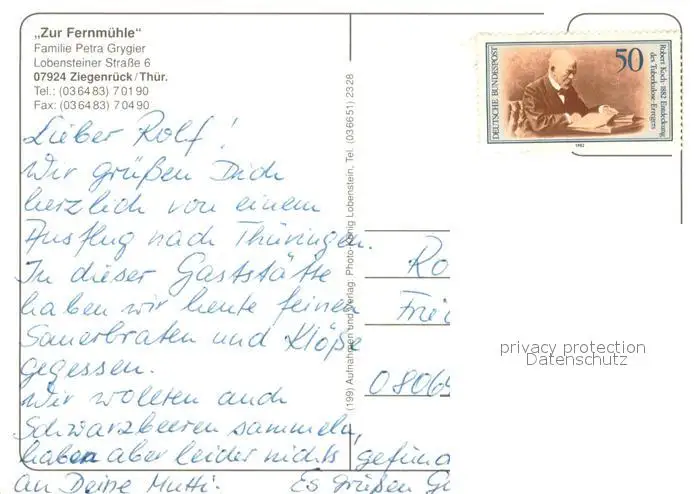 „Zur Fernmühle“
Familie Petra Grygier
Lobensteiner Straße 6
07924 Ziegenrück/Thür.
Tel.: (0 36 4 83) 7 01 90
Fax: (0 36 4 83) 7 04 90
Lieber Rolf!
Wir grüßen Dich
herzlich von einem
Ausflug nach Thüringen.
In dieser Gaststätte
haben wir heute feinen
Sauerbraten und Klöße
gegessen.
Wir wollten auch
Schwarzbeeren sammeln,
haben aber leider nichts gefun
an Deine Mutti. Es grüßen
(199) Aufnahmen und Verlag: Photo-König Lobenstein, Tel. (03 66 51) 23 28
DEUTSCHE BUNDESPOST
50
Robert Koch · 1882 Entdeckung
des Tuberkulose-Erregers
1982
Ro
08064
privacy protection
Datenschutz